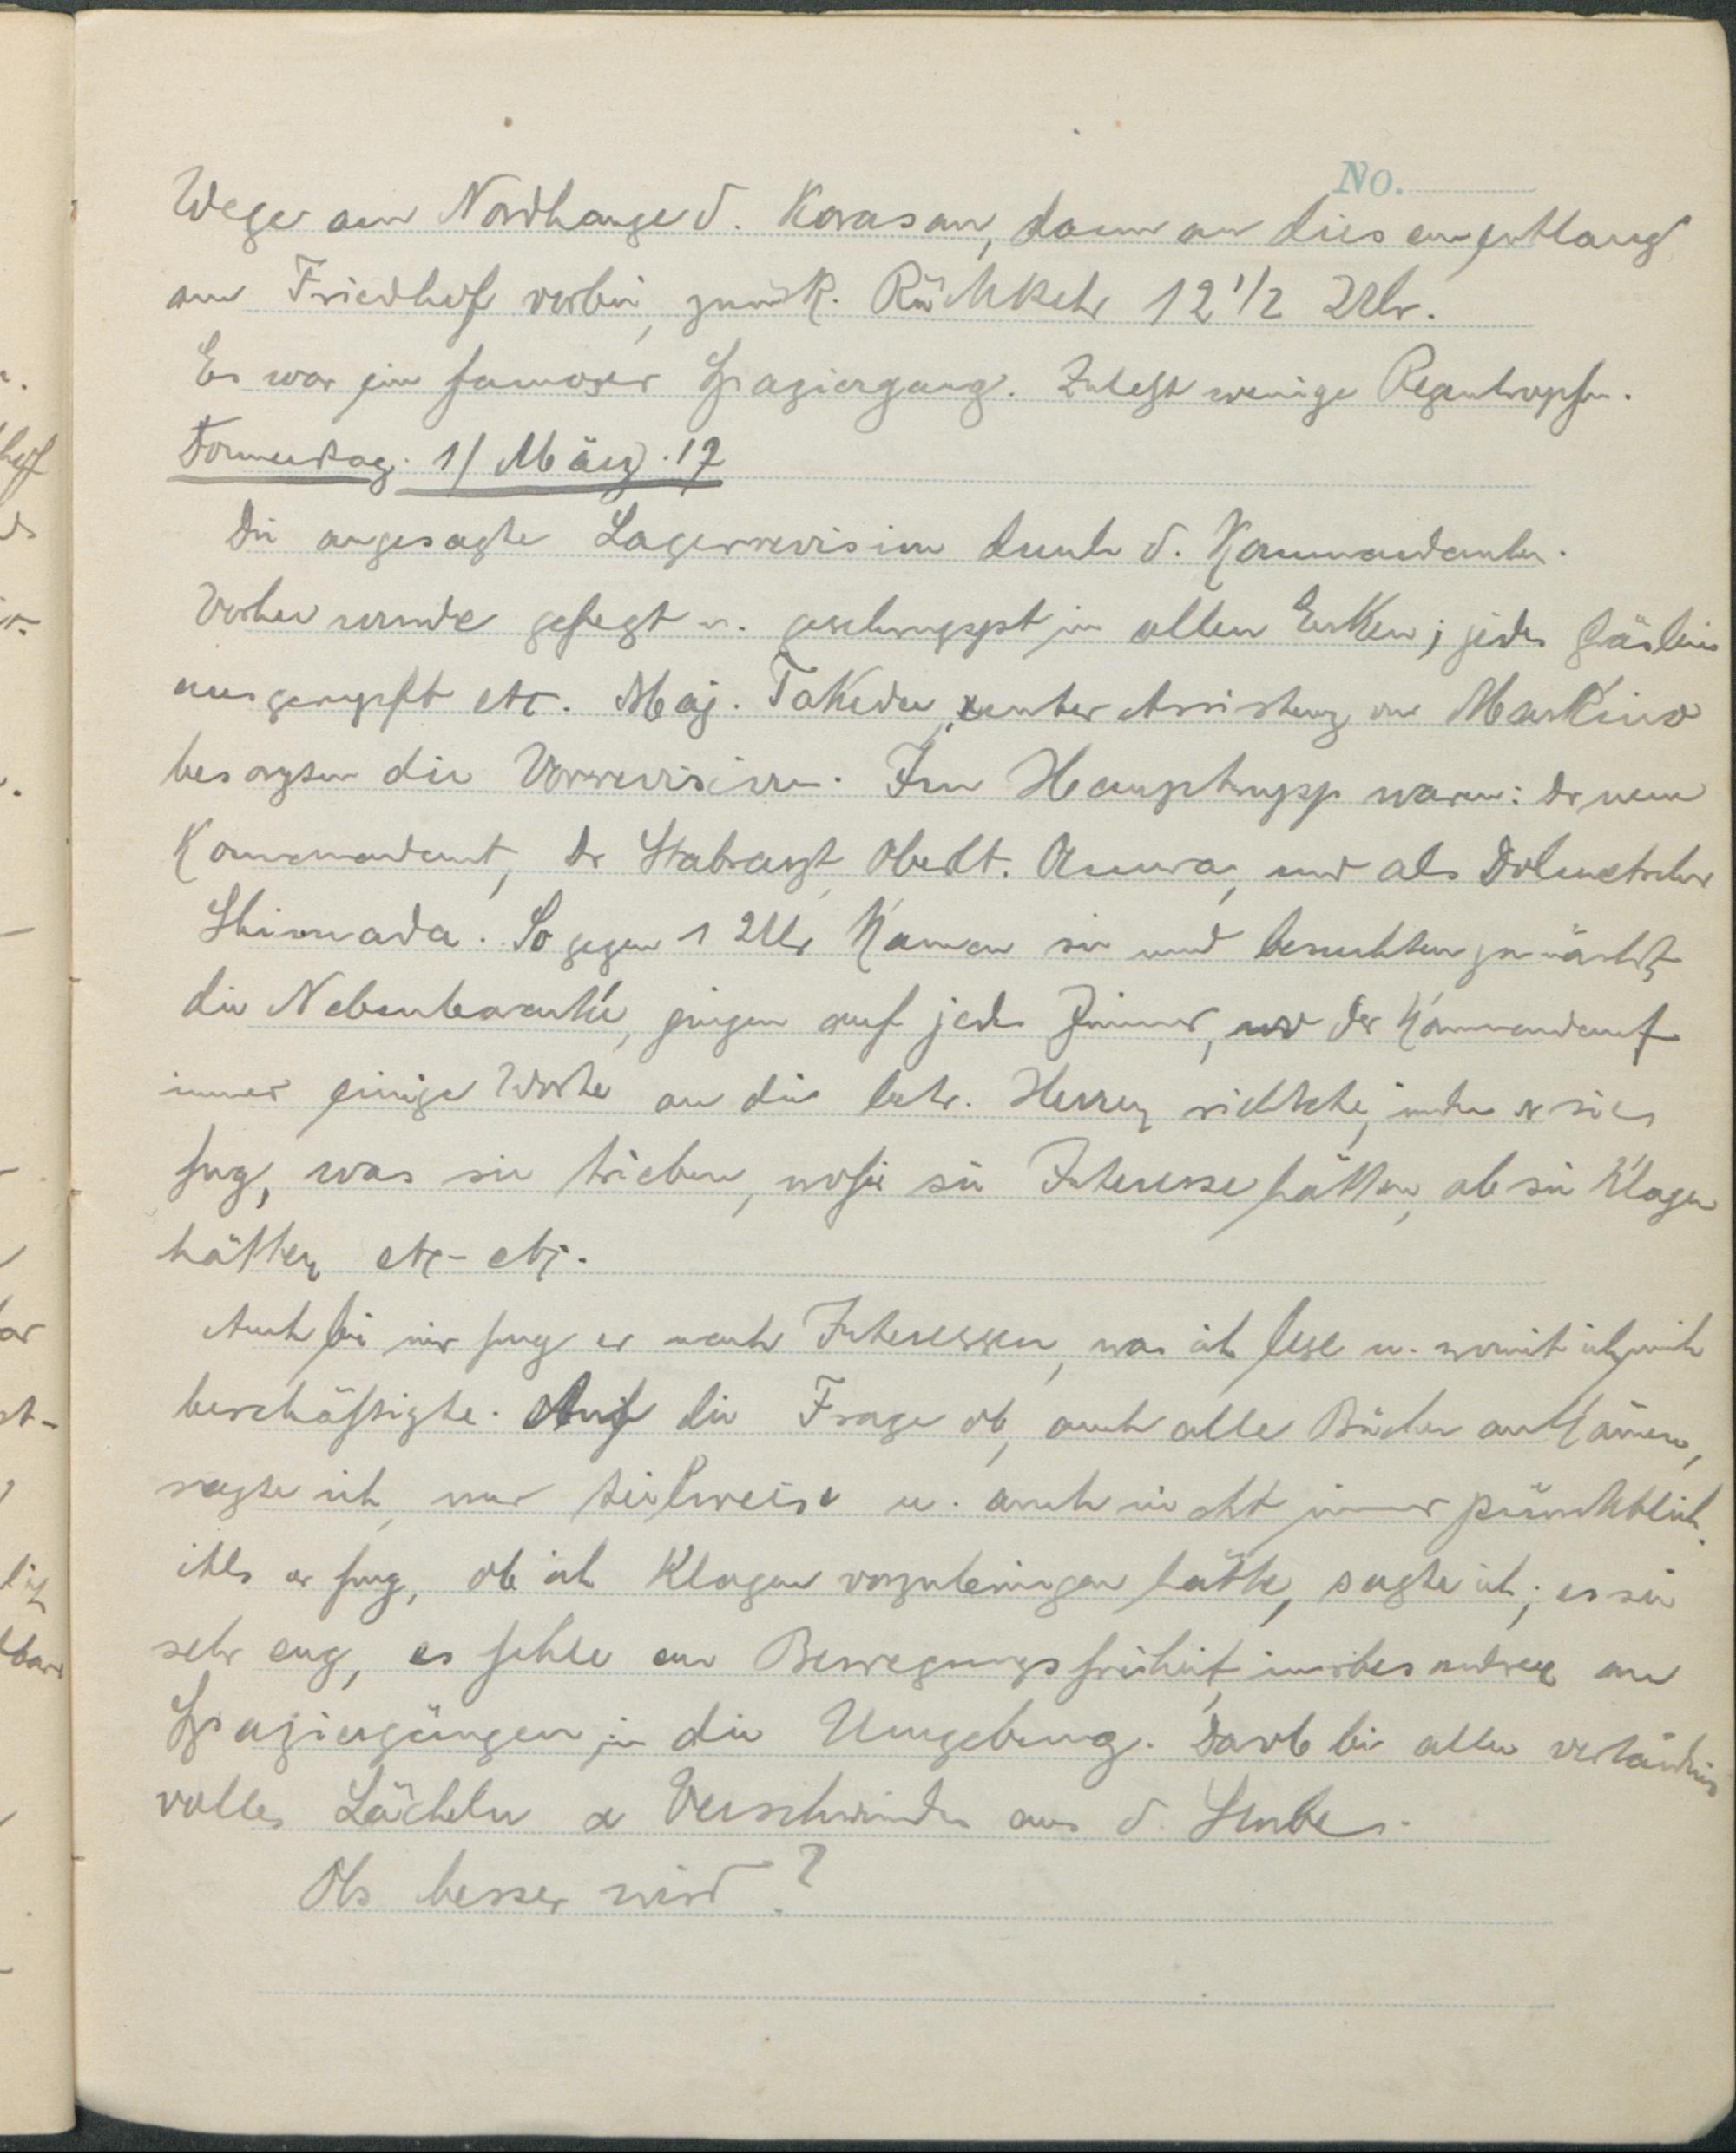 No.
Wege am Nordhange d. Korasan, dann an diesem entlang
am Friedhof vorbei, zurück. Rückkehr 12 1/2 Uhr.
Es war ein famoser Spaziergang. Zuletzt wenige Regentropfen.
Donnerstag. 1/ März. 17
Die angesagte Lagerrevision durch d. Kommandanten.
Vorher wurde gefegt u. geschruppt in allen Ecken; jedes Gräslein
ausgerupft etc. Maj. Takeda, unter Assistenz von Markino
besorgten die Vorrevision. Im Haupttrupp waren: der neue
Kommandant, der Stabsarzt, Oberlt. und als Dolmetscher
Shimada. So gegen 1 Uhr kamen sie und besuchten zunächst
die Nebenbaracke, gingen auf jedes Zimmer, wo der Kommandant
immer einige Worte an die betr. Herren richtete, indem er sie
frug, was sie trieben, wofür sie Interesse hätten, ob sie Klagen
hätten etc. etc.
Auch bei mir frug er nach Interessen, was ich lese u. womit ich mich
beschäftigte. Auf die Frage ob, auch alle Bücher ankämen,
sagte ich, nur teilweise u. auch nicht immer pünktlich.
Als er frug, ob ich Klagen vorzubringen hätte, sagte ich, es sei
sehr eng, es fehle an Bewegungsfreiheit, insbesondere an
Spaziergängen in die Umgebung. Darob bei allen verständnis
volles Lächeln & Verschwinden aus d. Stube.
Obs besser wird?